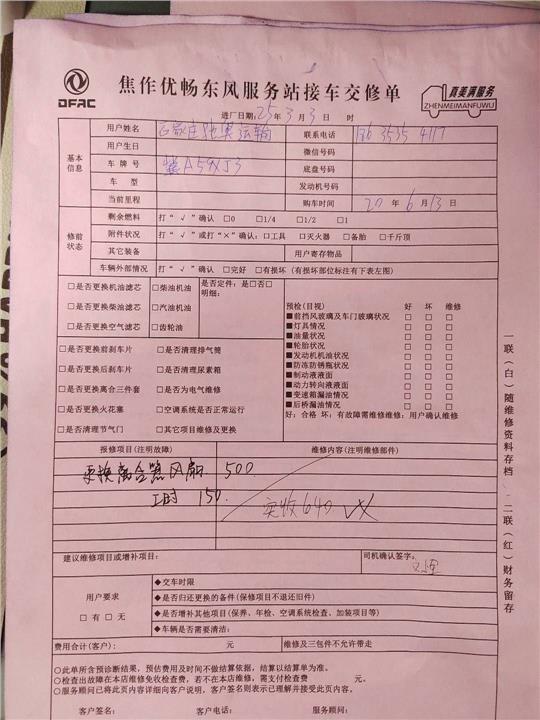 DFAC
焦作优畅东风服务站接车交修单
真美满服务
ZHENMEIMANFUWU
进厂日期：25年3月3日 时
基本信息
用户姓名 联系电话
用户生日 微信号码
车牌号 冀A59XJ3 底盘号码
车型 发动机号码
当前里程 购车时间 20年6月13日
修前状态
剩余燃料 打“√”确认 □0 □1/4 □1/2 □1
附件状况 打“√”或打“×”确认：□工具 □灭火器 □备胎 □千斤顶
其它装备 用户寄存物品
车辆外部情况 打“√”确认 □完好 □有损坏（有损坏部位标注有下表左图）
□是否更换机油滤芯 □柴油机油 是否定件：是□否□
明细：
□是否更换柴油滤芯 □汽油机油
□是否更换空气滤芯 □齿轮油
□是否更换前刹车片 □是否清理排气筒
□是否更换后刹车片 □是否清理尿素箱
□是否更换离合三件套 □是否为电气维修
□是否更换火花塞 □空调系统是否正常运行
□是否清理节气门 □其它项目维修及更换
预检(目视) 好 坏 维修
■前挡风玻璃及车门玻璃状况 □ □ □
■灯具情况 □ □ □
■油量状况 □ □ □
■轮胎状况 □ □ □
■发动机机油状况 □ □ □
■防冻防锈瓶状况 □ □ □
■制动液液面 □ □ □
■动力转向液液面 □ □ □
■变速箱漏油情况 □ □ □
■后桥漏油情况 □ □ □
好：合格 坏：有故障需维修维修：用户确认维修
报修项目(注明故障) 维修内容(注明维修部件)
更换离合器风扇 500
工时 150.
实收640
建议维修项目或增补项目： 司机确认签字：
用户要求
□有□无
◆交车时限
◆是否归还更换的备件(保修项目不退还旧件)
◆是否增补其他项目(保养、年检、空调系统检查、加装项目等)
◆车辆是否需要清洁：
费用合计(客户)： 元 维修及三包件不允许带走
○此单所含预诊断结果，预估费用及时间不做结算依据，结算以结算单为准。
○检查出故障在本店维修免收检查费，若不在本店维修、需支付检查费 元。
○服务顾问已将此页内容详细向客户说明，客户签名则表示已理解并接受此页内容。
客户签名： 客户电话： 服务顾问：
一联(白)随维修资料存档 二联(红)财务留存